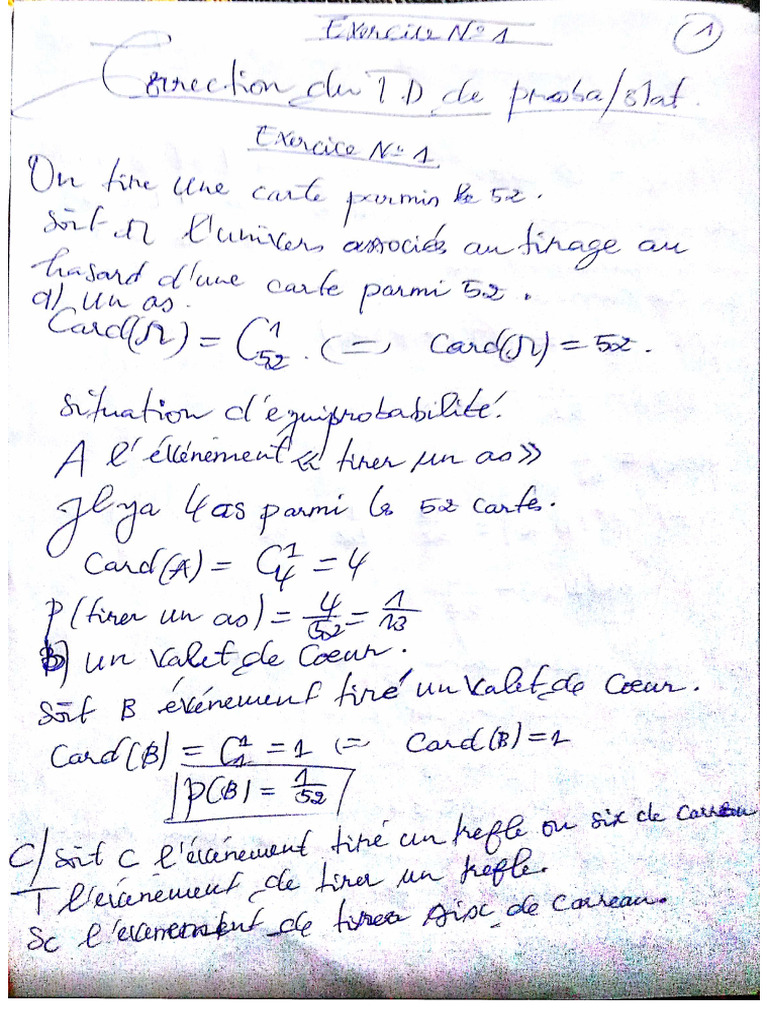 Exercice N° 1
1
Correction du T.D de proba/stat.
Exercice N° 1
On tire une carte parmis le 52.
Soit Ω l'univers associés au tirage au
hasard d'une carte parmi 52.
a) un as.
Card(Ω) = C¹₅₂. ⟺ Card(Ω) = 52.
Situation d'équiprobabilité.
A l'événement « tirer un as »
Il y a 4 as parmi les 52 cartes.
Card(A) = C¹₄ = 4
P(tirer un as) = 4/52 = 1/13
b) un valet de Coeur.
Soit B événement tiré un valet de Coeur.
Card(B) = C¹₁ = 1 ⟺ Card(B) = 1
P(B) = 1/52
C/ Soit C l'événement tiré un trefle ou six de carreau
T l'événement de tirer un trefle.
Sc l'événement de tirer six de Carreau.